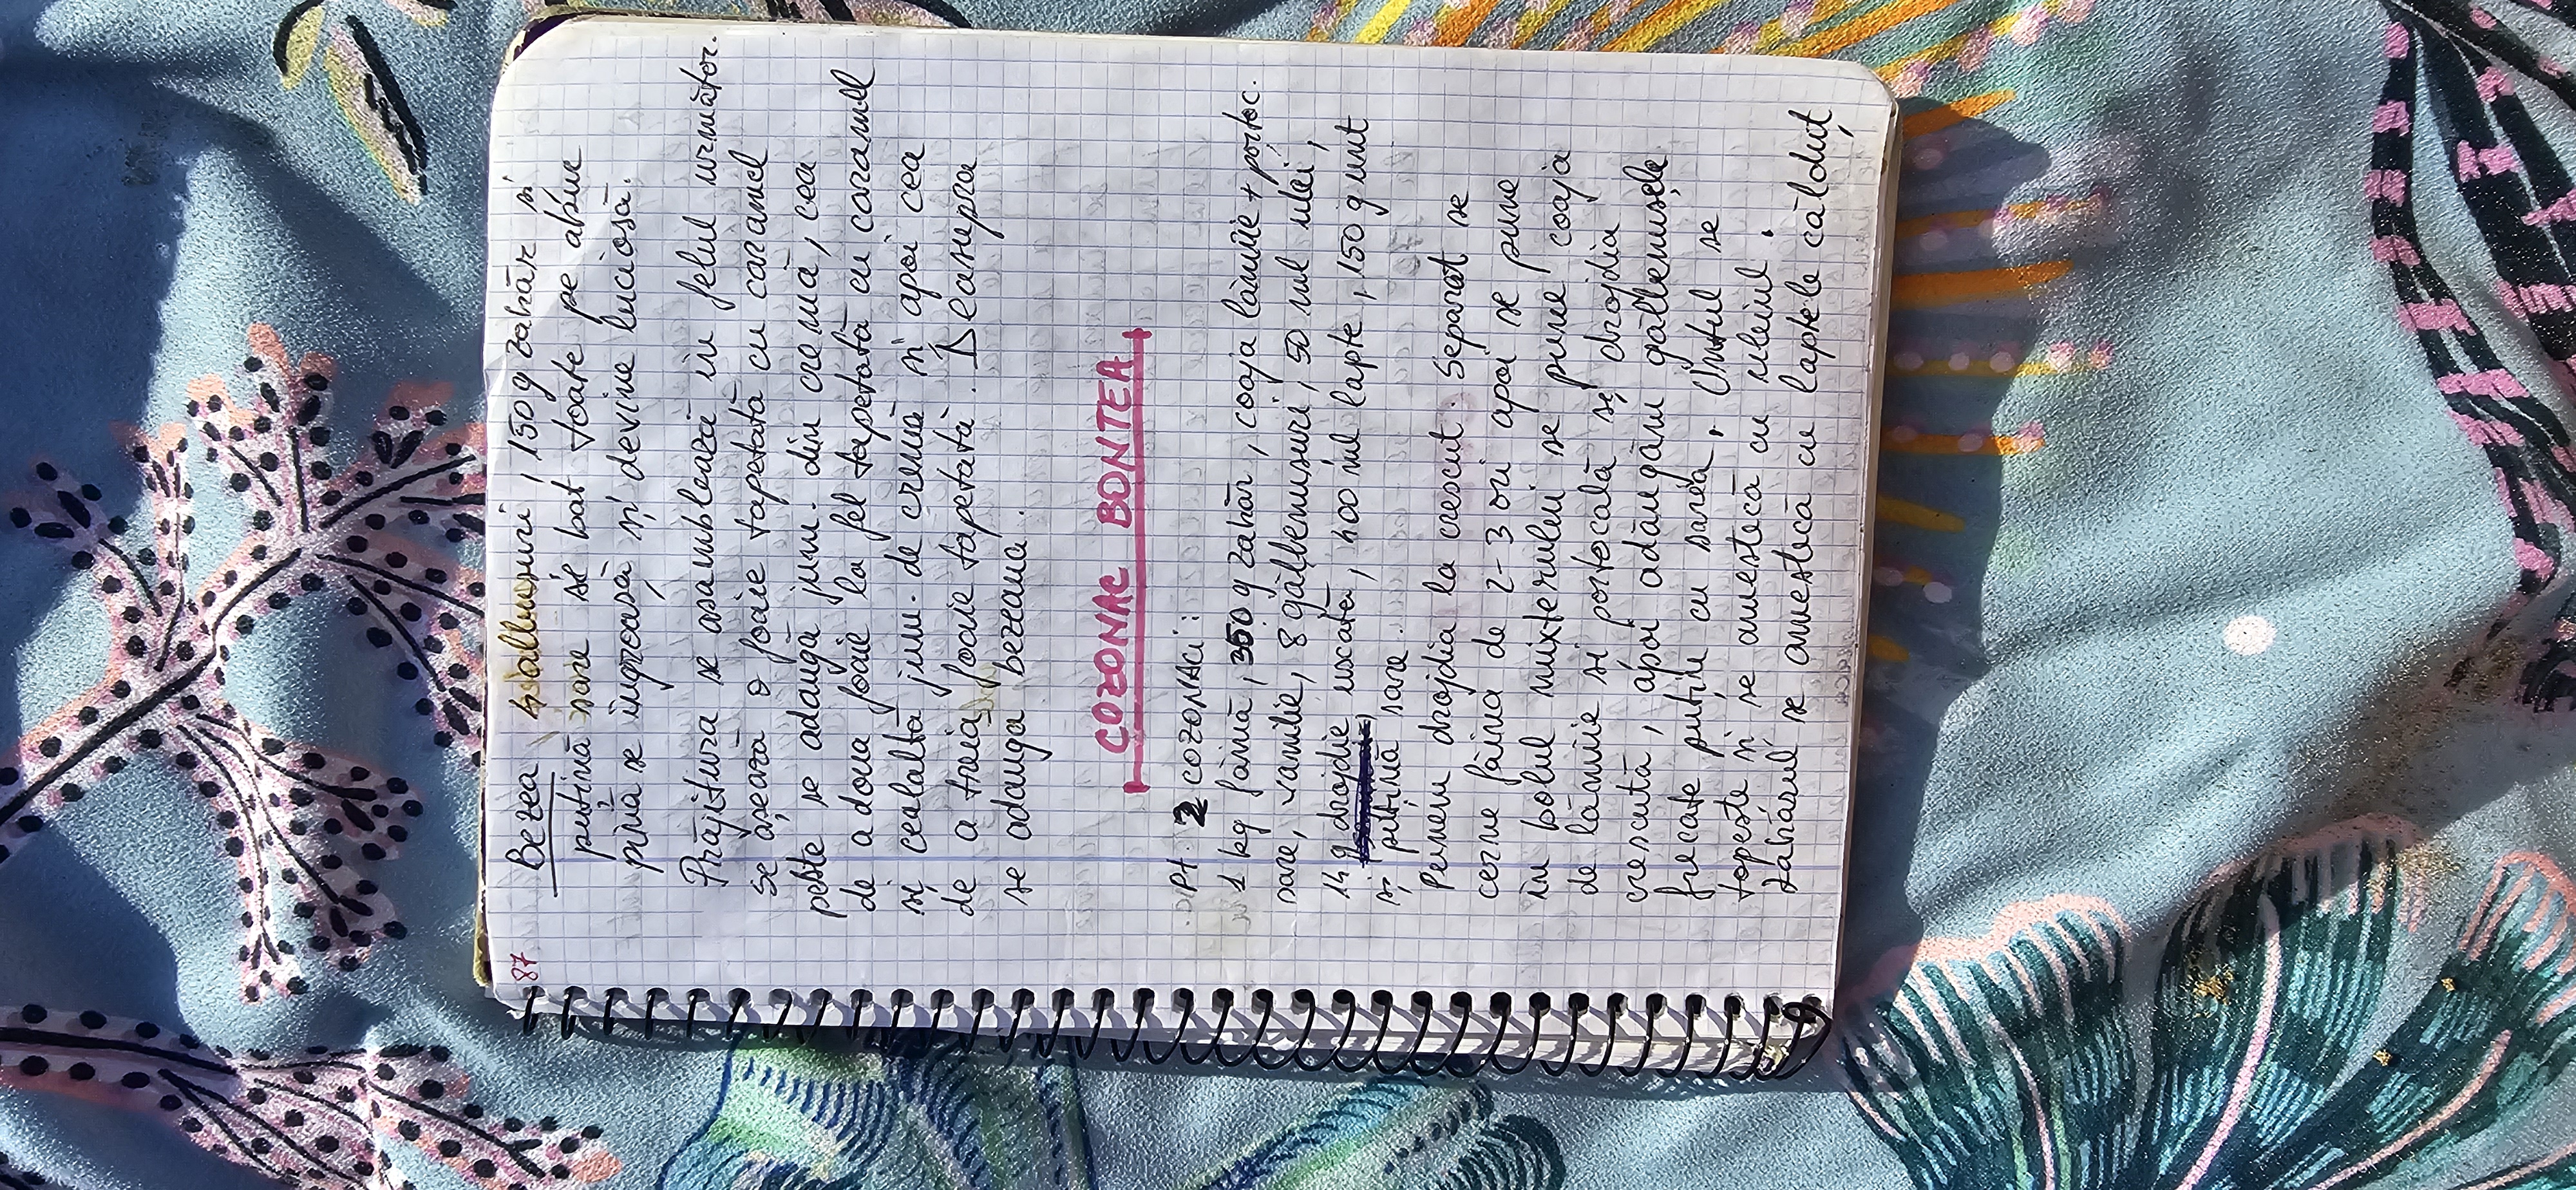 87 Bezea 4 albușuri, 150 g zahăr și
puțină sare se bat toate pe abur
pînă se îngroașă și devine lucioasă.
Prăjitura se asamblează în felul următor.
se așează o foaie tapetată cu caramel
peste se adaugă jum. din cremă, cea
de a doua foaie la fel tapetată cu caramel
și cealaltă jum. de cremă și apoi cea
de a treia foaie tapetată. Deasupra
se adauga bezeaua.
COZONAC BONTEA
Pt. 2 COZONACi:
1 kg făină, 350 g zahăr, coaja lămîie + portoc.
sare, vanilie, 8 gălbenușuri, 50 ml ulei,
14 g drojdie uscată, 400 ml lapte, 150 g unt
și puțină sare.
Punem drojdia la crescut. Separat se
cerne făina de 2-3 ori apoi se pune
în bolul mixterului se pune coaja
de lămîie și portocală și drojdia
crescută, apoi adăugăm gălbenușele
frecate puțin cu sarea. Untul se
topește și se amestecă cu uleiul.
Zahărul se amestecă cu laptele călduț